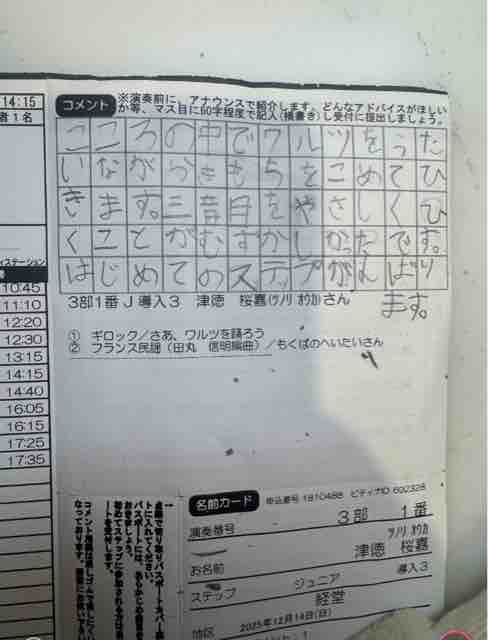 14:15
者1名
コメント
※演奏前に、アナウンスで紹介します。どんなアドバイスがほしい
か等、マス目に60字程度で記入(横書き)し受付に提出しましょう。
こころの中でワルツをうた
いながらきもちをこめてひ
きます。三昔目をやさしくひ
くことがむずかしかったです。
はじめてのステップがんばり
ます。
3部1番 J 導入3 津徳 桜嘉(ツノリ オウカ)さん
① ギロック/さあ、ワルツを踊ろう
② フランス民謡(田丸 信明編曲)/もくばのへいたいさん
ィステーション
10:45
11:10
12:20
12:30
13:15
14:15
14:40
16:05
16:15
17:25
17:35
名前カード
申込番号 1810488 ピティナID 602328
演奏番号
3部 1番
ツノリ オウカ
お名前
津徳 桜嘉
ステップ
ジュニア
導入3
地区
経堂
2025年12月14日(日)